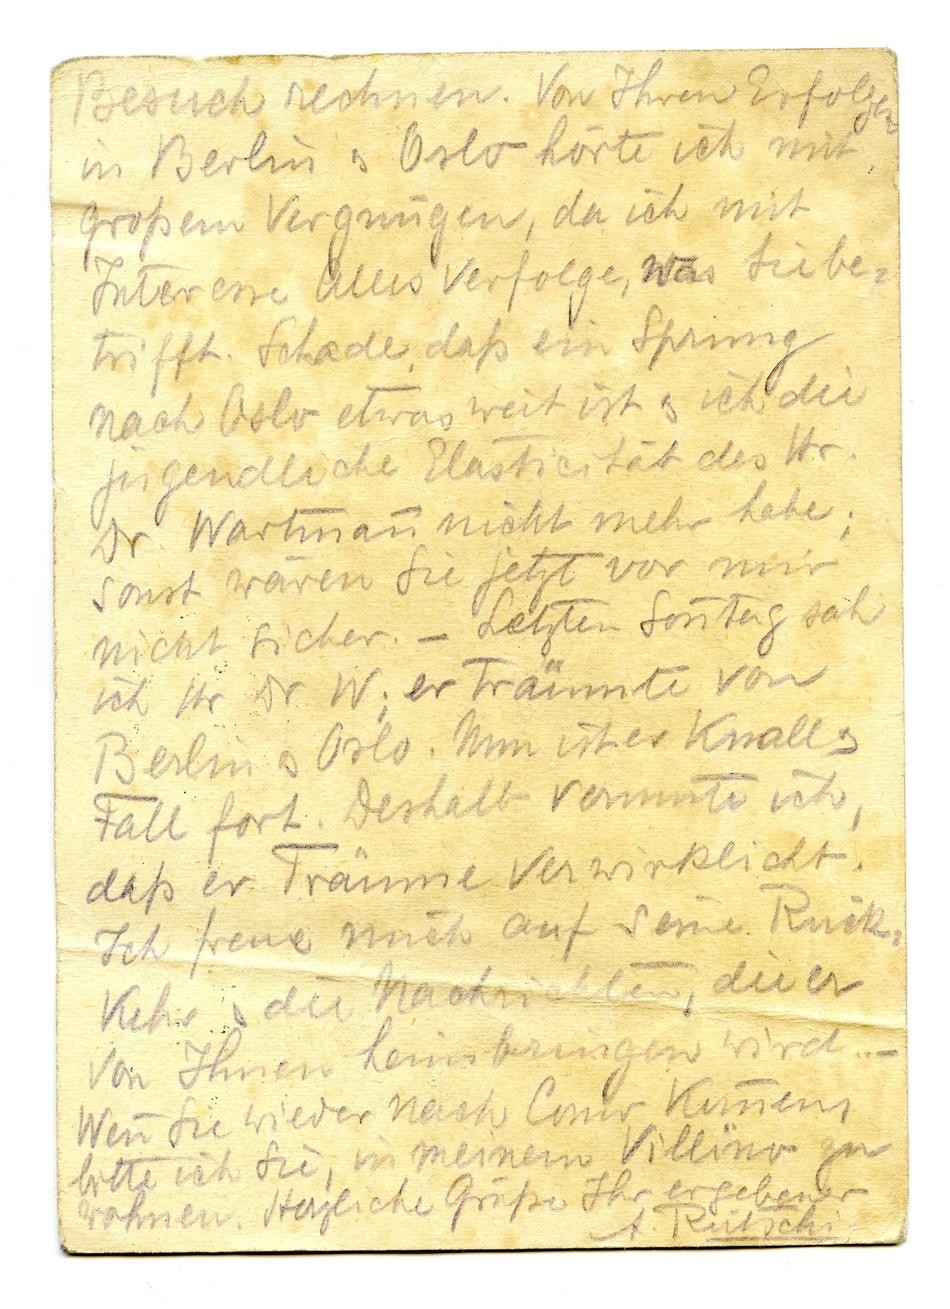 Besuch rechnen. Von Ihren Erfolgen
in Berlin & Oslo hörte ich mit
großem Vergnügen, da ich mit
Interesse Alles verfolge, was Sie be=
trifft. Schade, daß ein Sprung
nach Oslo etwas weit ist & ich die
jugendliche Elasticität des Hr.
Dr. Wartman̄ nicht mehr habe;
sonst wären Sie jetzt vor mir
nicht sicher. – Letzten Son̄tag sah
ich Hr Dr W; er träumte von
Berlin & Oslo. Nun ist er Knall &
Fall fort. Deshalb vermute ich,
daß er Träume verwirklicht.
Ich freue mich auf seine Rück=
kehr & die Nachrichten, die er
von Ihnen heimbringen wird. –
Wen̄ Sie wieder nach Como kom̄en,
bitte ich Sie, in meinem Villino zu
wohnen. Herzliche Grüße Ihr ergebener
A. Rütschi